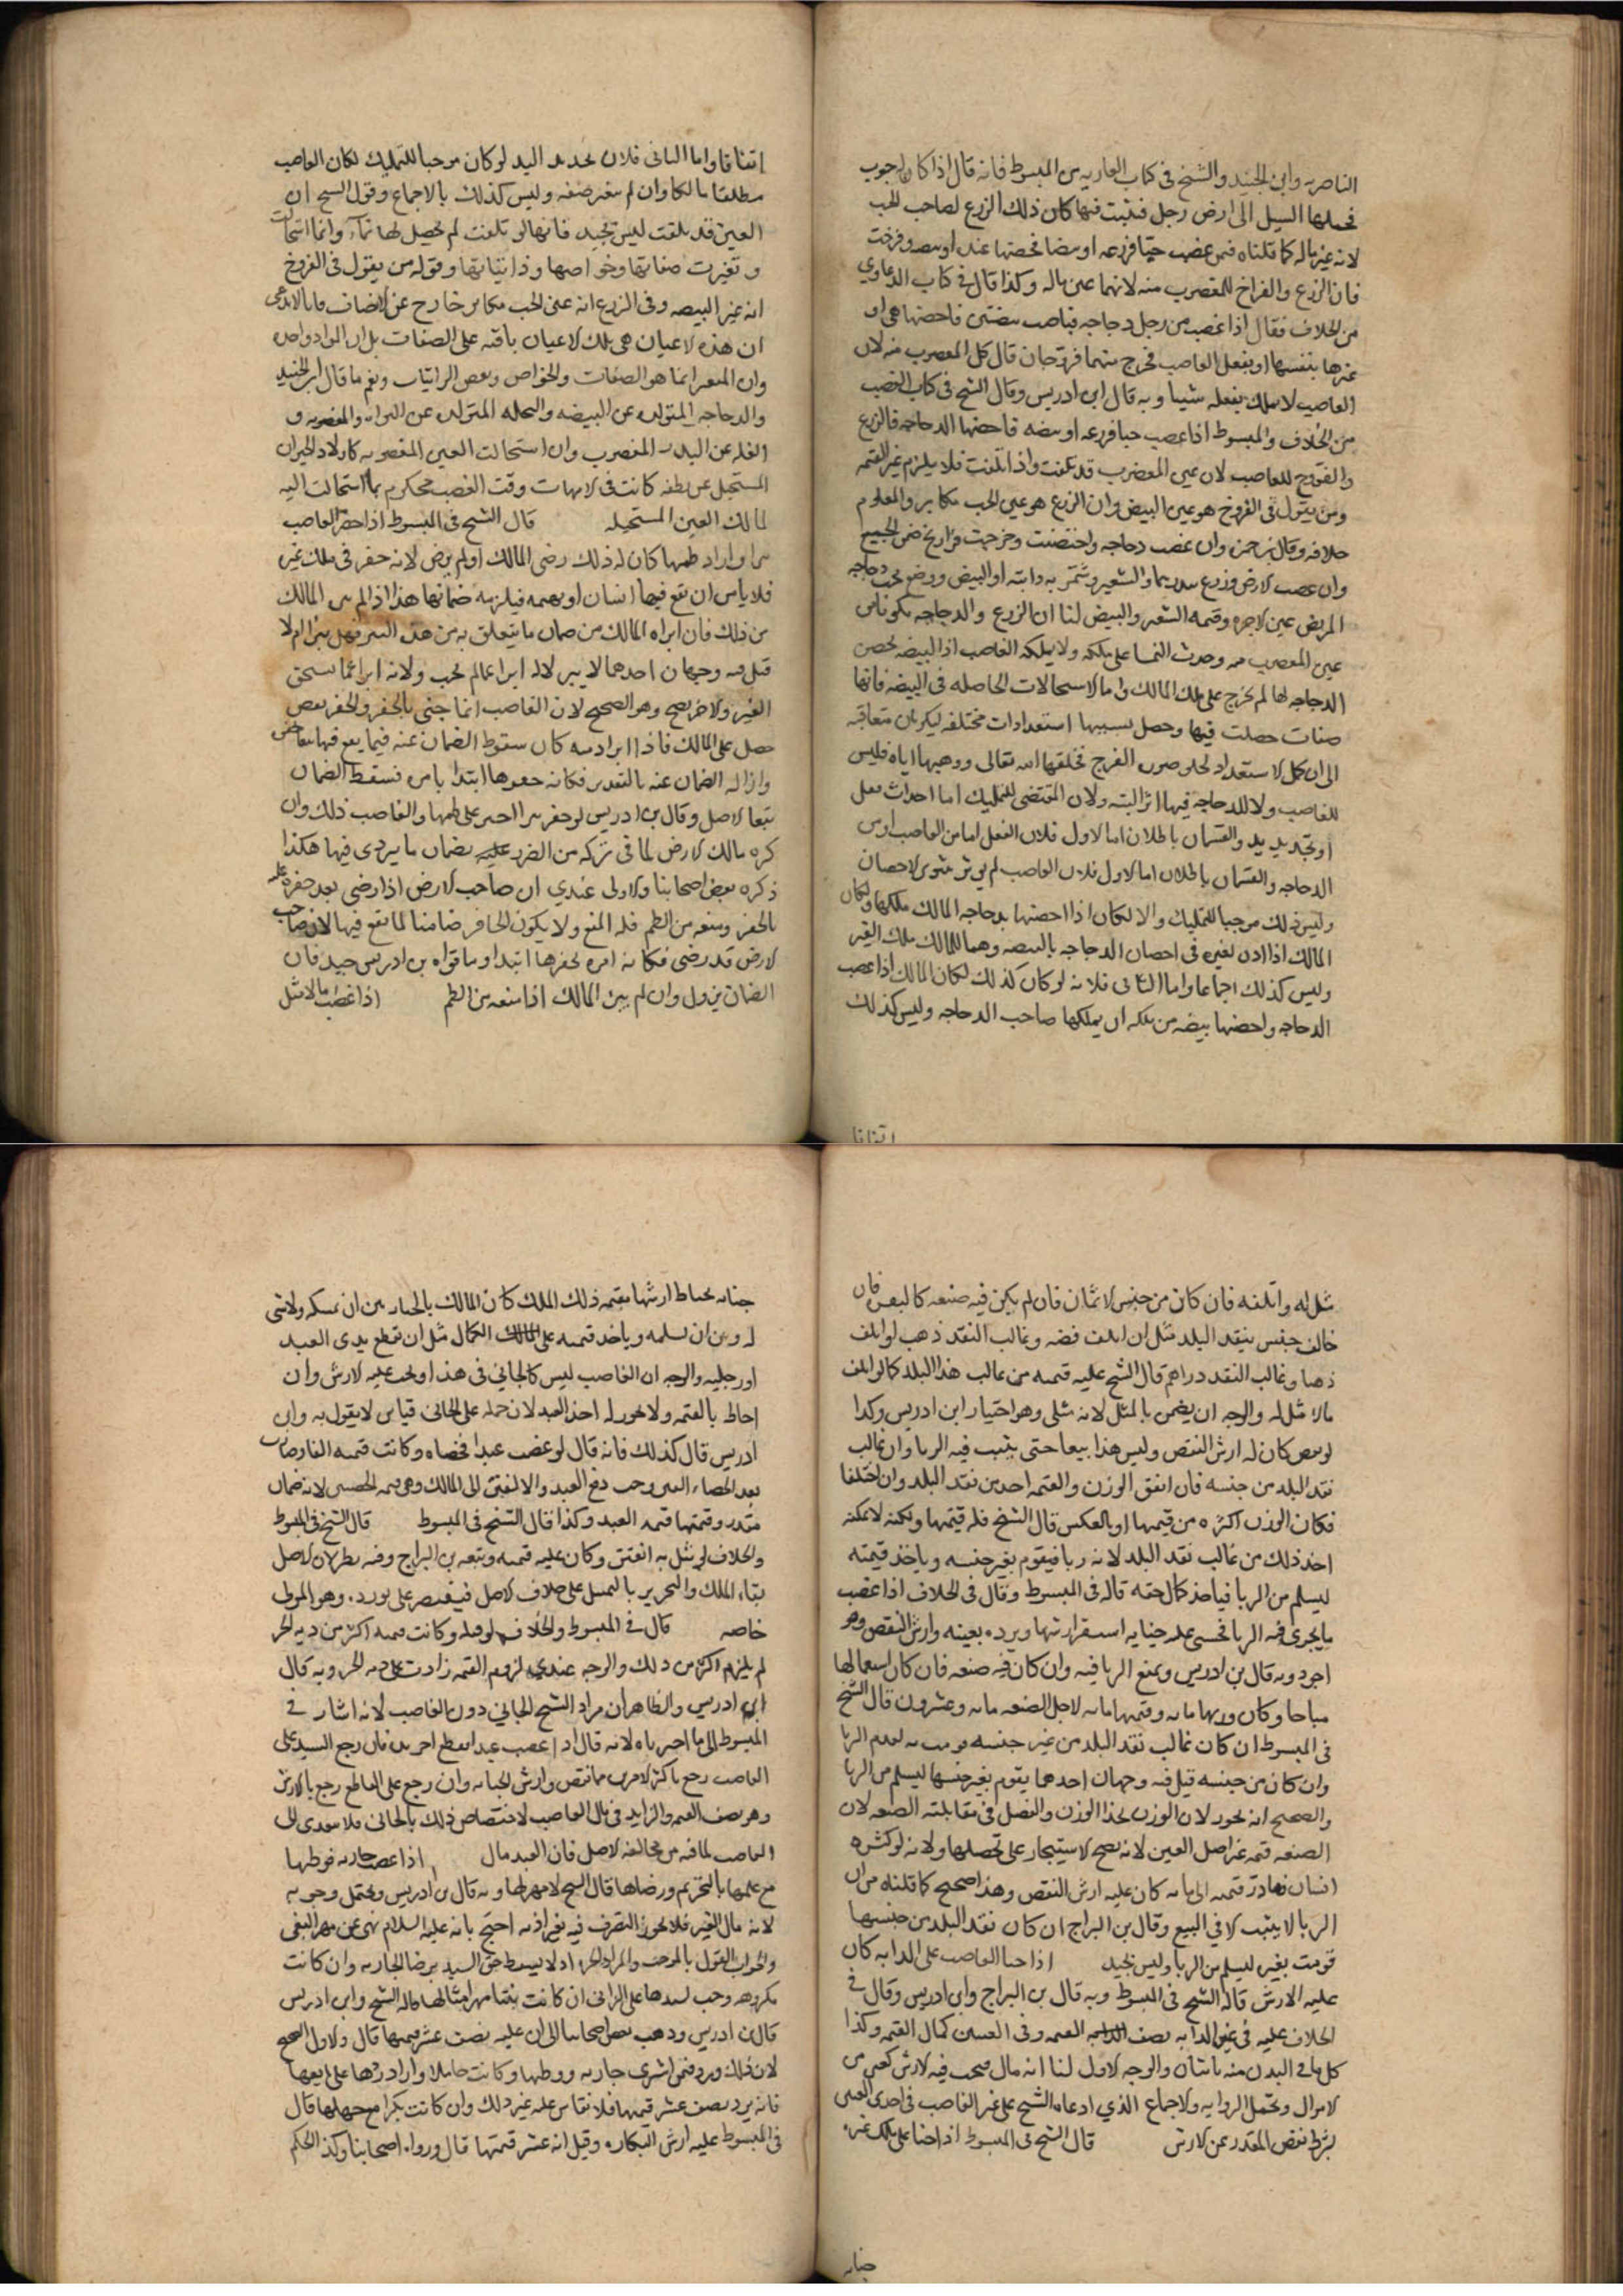 الناصريه وابن الجنيد والشيخ في كتاب العاريه من المبسوط فانه قال اذا كان لحبوب
فحملها السيل الى ارض رجل فنبتت فيها كان ذلك الزرع لصاحب الحب
لانه عين ماله كما قلناه فمن غصب حبا فزرعه او بيضا فحضنها عنده او بيضه وفرخت
فان الزرع والفراخ للمغصوب منه لانهما عين ماله وكذا قال في كتاب الدعاوي
من الخلاف فقال اذا غصب من رجل دجاجه فباضت بيضتين فاحتضنها هي او
غيرها بنفسها او بفعل الغاصب فخرج منهما فروجان قال كل للمغصوب منه لان
الغاصب لا يملك بفعله شيا وبه قال ابن ادريس وقال الشيخ في كتاب الغصب
من الخلاف والمبسوط اذا غصب حبا فزرعه او بيضه فاحضنها الدجاجه فالزرع
والفروج للغاصب لان عين المغصوب قد تلفت واذا تلفت فلا يلزم غير القيمه
ومن يقول في الفروخ هو عين البيض وان الزرع هو عين الحب مكابر والمعلوم
خلافه وقال بن حمزه وان غصب دجاجه واحتضنت وخرجت فراريخ ضمن الجميع
وان غصب الارض وزرع والشعير وشمر به دابته او البيض ووضع تحت دجاجه
المريض عين الاجره وقيمه الشعير والبيض لنا ان الزرع والدجاجه تكونا من
عين المغصوب منه وحدث النما على ملكه ولا يملكه الغاصب اذ البيضه بحضن
الدجاجه لها لم تخرج على ملك المالك واما الاستحالات الحاصله في البيضه فانها
صفات حصلت فيها وحصل بسببها استعدادات مختلفه ليكون متعاقبه
الى ان كمل الاستعداد لحلو صورة الفرخ فخلقها الله تعالى ووهبها اياه فليس
للغاصب ولا للدجاجه فيها اثر البته ولان المقتضي للتمليك اما احداث فعل
او تجديد يد والقسمان باطلان اما الاول فلان الفعل اما من الغاصب او من
الدجاجه والقسمان باطلان اما الاول فلان الغاصب لم يوثر سوى الاحضان
وليس ذلك موجبا للتمليك والا لكان اذا احضنها بدجاجه المالك ملكها ولكان
المالك اذا اذن لغيره في احضان الدجاجه بالبيضه وهما للمالك ملك الغير
وليس كذلك اجماعا واما الثاني فلانه لو كان كذلك لكان المالك اذا غصب
الدجاجه واحضنها بيضه من ملكه ان يملكها صاحب الدجاجه وليس كذلك
اتفاقا
اتفاقا واما الثاني فلان تجدد اليد لو كان موجبا للتمليك لكان الغاصب
مطلقا مالكا وان لم يتغير صفه وليس كذلك بالاجماع وقول الشيخ ان
العين قد تلفت ليس بجيد فانها لو تلفت لم يحصل لها نماء وانما استحالت
وتغيرت صفاتها وخواصها وذاتياتها وقوله من يقول في الفروخ
انه عين البيضه وفي الزرع انه عين الحب مكابر خارج عن الانصاف فانا لا ندعي
ان هذه الاعيان هي تلك الاعيان باقيه على الصفات بل ان المواد واحده
وان المتغير انما هو الصفات والخواص وبعض الذاتيات ونعم ما قال ابن الجنيد
والدجاجه المتولده عن البيضه والنخله المتولده عن النواه والمغصوبه و
الغله عن البذر المغصوب وان استحالت العين المغصوبه كاولاد الحيوان
المستحيل عن نطفه كانت في الامهات وقت الغصب محكوم بما استحالت اليه
لمالك العين المستحيله قال الشيخ في المبسوط اذا حفر الغاصب
بئرا واراد طمها كان له ذلك رضي المالك او لم يرض لانه حفر في ملك غيره
فلا يامن ان يقع فيها انسان او بهيمه فيلزمه ضمانها هذا اذا لم يبره المالك
من ذلك فان ابراه المالك من ضمان ما يتعلق به من هذه البئر فهل يبرا ام لا
قيل فيه وجهان احدهما لا يبرا لانه ابرا عما لم يجب ولانه ابرا عما يستحق
الغير والاخر يصح وهو الصحيح لان الغاصب انما جنى بالحفر والحفر بغصب
حصل على المالك فاذا ابراه منه كان سقوط الضمان عنه فيما يقع فيها
وازاله الضمان عنه بالتقدير فكانه حفرها ابتدا بامره فسقط الضمان
تبعا للاصل وقال بن ادريس لو حفر بئرا اجبر على طمها والغاصب ذلك وان
كره مالك الارض لما في تركه من الضرر عليه بضمان ما يتردى فيها هكذا
ذكره بعض اصحابنا والاولى عندي ان صاحب الارض اذا رضي بعد حفره
بالحفر ومنعه من الطم فله المنع ولا يكون الحافر ضامنا لما يقع فيها لان صاحب
الارض قد رضي فكانه امره بحفرها ابتدا وما قواه بن ادريس جيد فان
الضمان يزول وان لم يبر المالك اذا منعه من الطم اذا غصب ما لا مثل
مثل له واتلفه فان كان من جنس الاثمان فان لم يكن فيه صنعه كالنقره فان
خالف جنس بنقد البلد مثل ان اتلف فضه وغالب النقد ذهب او اتلف
ذهبا وغالب النقد دراهم قال الشيخ عليه قيمته من غالب هذا البلد كما لو اتلف
ما لا مثل له والوجه ان يضمن بالمثل لانه مثلي وهو اختيار ابن ادريس وكذا
لو نقص كان له ارش النقص وليس هذا بيعا حتى يثبت فيه الربا وان غالب
نقد البلد من جنسه فان اتفق الوزن والقيمه اخذ من نقد البلد وان اختلفا
فكان الوزن اكثر من قيمتها او بالعكس قال الشيخ فله قيمتها ولكنه لا يمكنه
اخذ ذلك من غالب نقد البلد لانه ربا فيقوم بغير جنسه وياخذ قيمته
ليسلم من الربا فياخذ كمال حقه قاله في المبسوط وقال في الخلاف اذا غصب
ما يجري فيه الربا فجنى عليه جنايه استقر ارشها ويرده بعينه وارش النقص وهو
اجود وبه قال بن ادريس ويمنع الربا فيه وان كان فيه صنعه فان كان استعمالها
مباحا وكان وزنها مائه وقيمتها مائه لاجل الصنعه مائه وعشرون قال الشيخ
في المبسوط ان كان غالب نقد البلد من غير جنسه قومت به لعدم الربا
وان كان من جنسه قيل فيه وجهان احدهما يقوم بغير جنسها ليسلم من الربا
والصحيح انه يجوز لان الوزن بحذا الوزن والفضل في مقابلته الصنعه لان
الصنعه قيمه غير اصل العين لانه يصح الاستيجار على تحصيلها ولانه لو كسره
انسان فعادت قيمته الى مائه كان عليه ارش النقص وهذا صحيح كما قلناه من ان
الربا لا يثبت الا في البيع وقال بن البراج ان كان نقد البلد من جنسها
قومت بغيره ليسلم من الربا وليس بجيد اذا جنى الغاصب على الدابه كان
عليه الارش قاله الشيخ في المبسوط وبه قال بن البراج وابن ادريس وقال في
الخلاف عليه في عين الدابه نصف القيمه وفي العينين كمال القيمه وكذا
كل ما في البدن منه اثنان والوجه الاول لنا انه مال فيجب فيه الارش كغيره من
الاموال وتحمل الروايه والاجماع الذي ادعاه الشيخ على غير الغاصب في احدى العينين
بشرط نقص المقدر عن الارش قال الشيخ في المبسوط اذا جنا على ملك غيره
جنايه
جنايه يحيط ارشها بقيمه ذلك الملك كان المالك بالخيار بين ان يمسكه ولا شي
له وبين ان يسلمه وياخذ قيمته على الكمال مثل ان تقطع يدي العبد
او رجليه والوجه ان الغاصب ليس كالجاني في هذا او يجب عليه الارش وان
احاط بالقيمه ولا يجوز له اخذ العبد لان حمله على الجاني قياس لا نقول به وابن
ادريس قال كذلك فانه قال لو غصب عبدا فخصاه وكانت قيمته الفا وصارت
بعد الخصاء الفين وجب دفع العبد والالفين الى المالك وهي قيمه الخصيتين لانه ضمان
مقدر وقيمتها قيمه العبد وكذا قال الشيخ في المبسوط قال الشيخ في المبسوط
والخلاف لو مثل به انعتق وكان عليه قيمته وتبعه بن البراج وفيه نظر لان الاصل
بقاء الملك والتحرير بالتمثيل على خلاف الاصل فيقتصر على مورده وهو المولى
خاصه قال في المبسوط والخلاف لو قتله وكانت قيمته اكثر من ديه الحر
لم يلزمه اكثر من ذلك والوجه عندي لزوم القيمه زادت على ديه الحر وبه قال
ابن ادريس والظاهر ان مراد الشيخ الجاني دون الغاصب لانه اشار في
المبسوط الى ما اخترناه لانه قال اذا غصب عبدا فقطع اخر يده فان رجع السيد على
الغاصب رجع باكثر الامرين مما نقص وارش الجنايه وان رجع على القاطع رجع بالارش
وهو نصف القيمه والزايد في مال الغاصب لاختصاص ذلك بالجاني فلا يتعدى الى
الغاصب لما فيه من مخالفه الاصل فان العبد مال اذا غصب جاريه فوطيها
مع علمها بالتحريم ورضاها قال الشيخ لا مهر لها وبه قال بن ادريس ويحتمل وجوبه
لانه مال الغير فلا يجوز التصرف فيه بغير اذنه احتج بانه عليه السلام نهى عن مهر البغي
والجواب القول بالموجب والمراد الحره اذ لا يسقط حق السيد برضا الجاريه وان كانت
مكرهه وجب لسيدها على الزاني ان كانت ثيبا مهر امثالها قاله الشيخ وابن ادريس
قال بن ادريس وذهب بعض اصحابنا الى ان عليه نصف عشر قيمتها قال والاول الصحيح
لان ذلك ورد فيمن اشترى جاريه ووطيها وكانت حاملا واراد ردها على بايعها
فانه يرد نصف عشر قيمتها فلا نقاس عليه غير ذلك وان كانت بكرا مع جهلها قال
في المبسوط عليه ارش البكاره وقيل انه عشر قيمتها قال ورواه اصحابنا وكذا الحكم